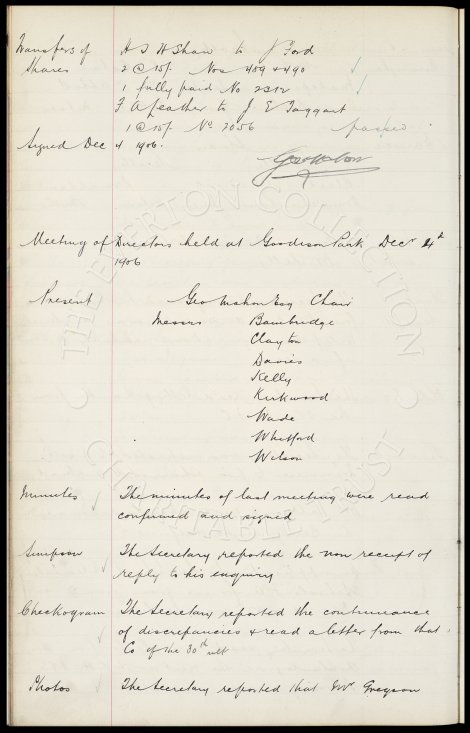 Transfers of H S H Shaw to J Ford
Shares 2 @ 15/- Nos 489 & 490
1 fully paid No 2312
F A feather to J E Taggart
1 @ 15/- No 2056 passed
Signed Dec 4 1906.
Geo Mahon
Meeting of Directors held at Goodison Park Decr 4th
1906
Present Geo Mahon Esq Chair
Messrs Bainbridge
Clayton
Davies
Kelly
Kirkwood
Wade
Whitford
Wilson
Minutes The minutes of last meeting were read
confirmed and signed
Simpson The Secretary reported the non receipt of
reply to his enquiry
Checkogram The Secretary reported the continuance
of discrepancies & read a letter from that
Co of the 30th ult
Photos The Secretary reported that Mr Greyson
THE EVERTON COLLECTION
CHARITABLE TRUST